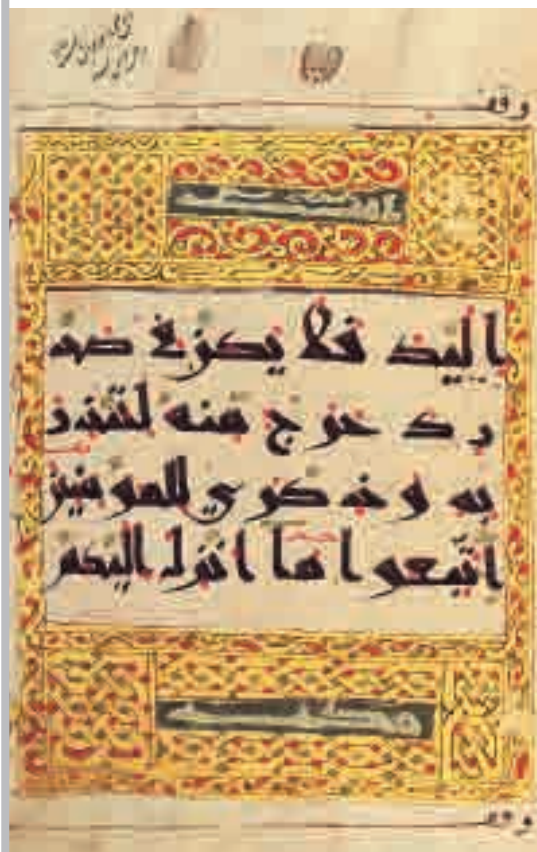 وقف
اليك فلا يكن في صد
رك حرج منه لتنذر
به وذكرى للمومنين
اتبعوا ما انزل اليكم
وقف